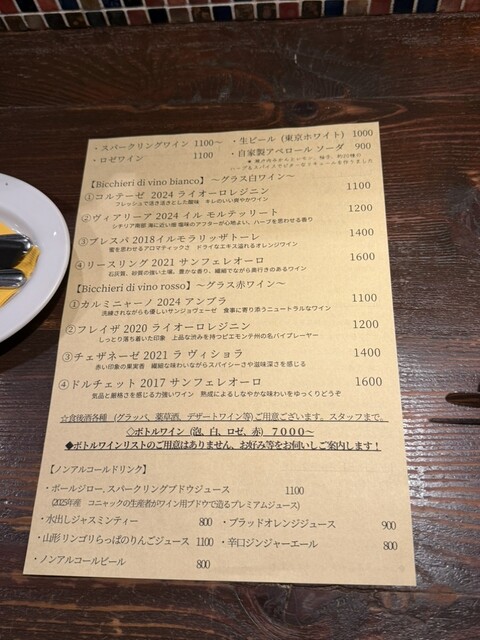 ・スパークリングワイン 1100～ ・生ビール (東京ホワイト) 1000
・ロゼワイン 1100 ・自家製アペロール ソーダ 900
【Bicchieri di vino bianco】 ～グラス白ワイン～
①コルテーゼ 2024 ライオーロレジニン 1100
フレッシュで活き活きとした酸味 キレのいい爽やかワイン
②ヴィアリーア 2024 イル モルテッリート 1200
シチリア南部 海に近い畑 塩味のアフターが心地よい、ハーブを思わせる香り
③ブレスパ 2018 イルモラリッザトーレ 1400
蜜を思わせるアロマティックさ ドライなエキス溢れるオレンジワイン
④リースリング 2021 サンフェレオーロ 1600
石灰質、砂質の強い土壌、豊かな香り、繊細でながら奥行きのあるワイン
【Bicchieri di vino rosso】～グラス赤ワイン～
①カルミニャーノ 2024 アンブラ 1100
洗練されながらも優しいサンジョヴェーゼ 食事に寄り添うニュートラルなワイン
②フレイザ 2020 ライオーロレジニン 1200
しっとり落ち着いた印象 上品な渋みを持つピエモンテ州の名バイプレーヤー
③チェザネーゼ 2021 ラ ヴィショラ 1400
赤い印象の果実香 繊細な味わいながらスパイシーさや滋味深さを感じる
④ドルチェット 2017 サンフェレオーロ 1600
気品と厳格さを感じる力強いワイン 熟成によるしなやかな味わいをゆっくりどうぞ
☆食後酒各種 (グラッパ、薬草酒、デザートワイン等)ご用意ございます。スタッフまで。
◇ボトルワイン (泡、白、ロゼ、赤) 7000～
◆ボトルワインリストのご用意はありません、お好み等をお伺いしご案内します！
【ノンアルコールドリンク】
・ポールジロー,スパークリングブドウジュース 1100
(2025年産 コニャックの生産者がワイン用ブドウで造るプレミアムジュース)
・水出しジャスミンティー 800 ・ブラッドオレンジジュース 900
・山形 リンゴリらっぱのりんごジュース 1100 ・辛口ジンジャーエール 800
・ノンアルコールビール 800